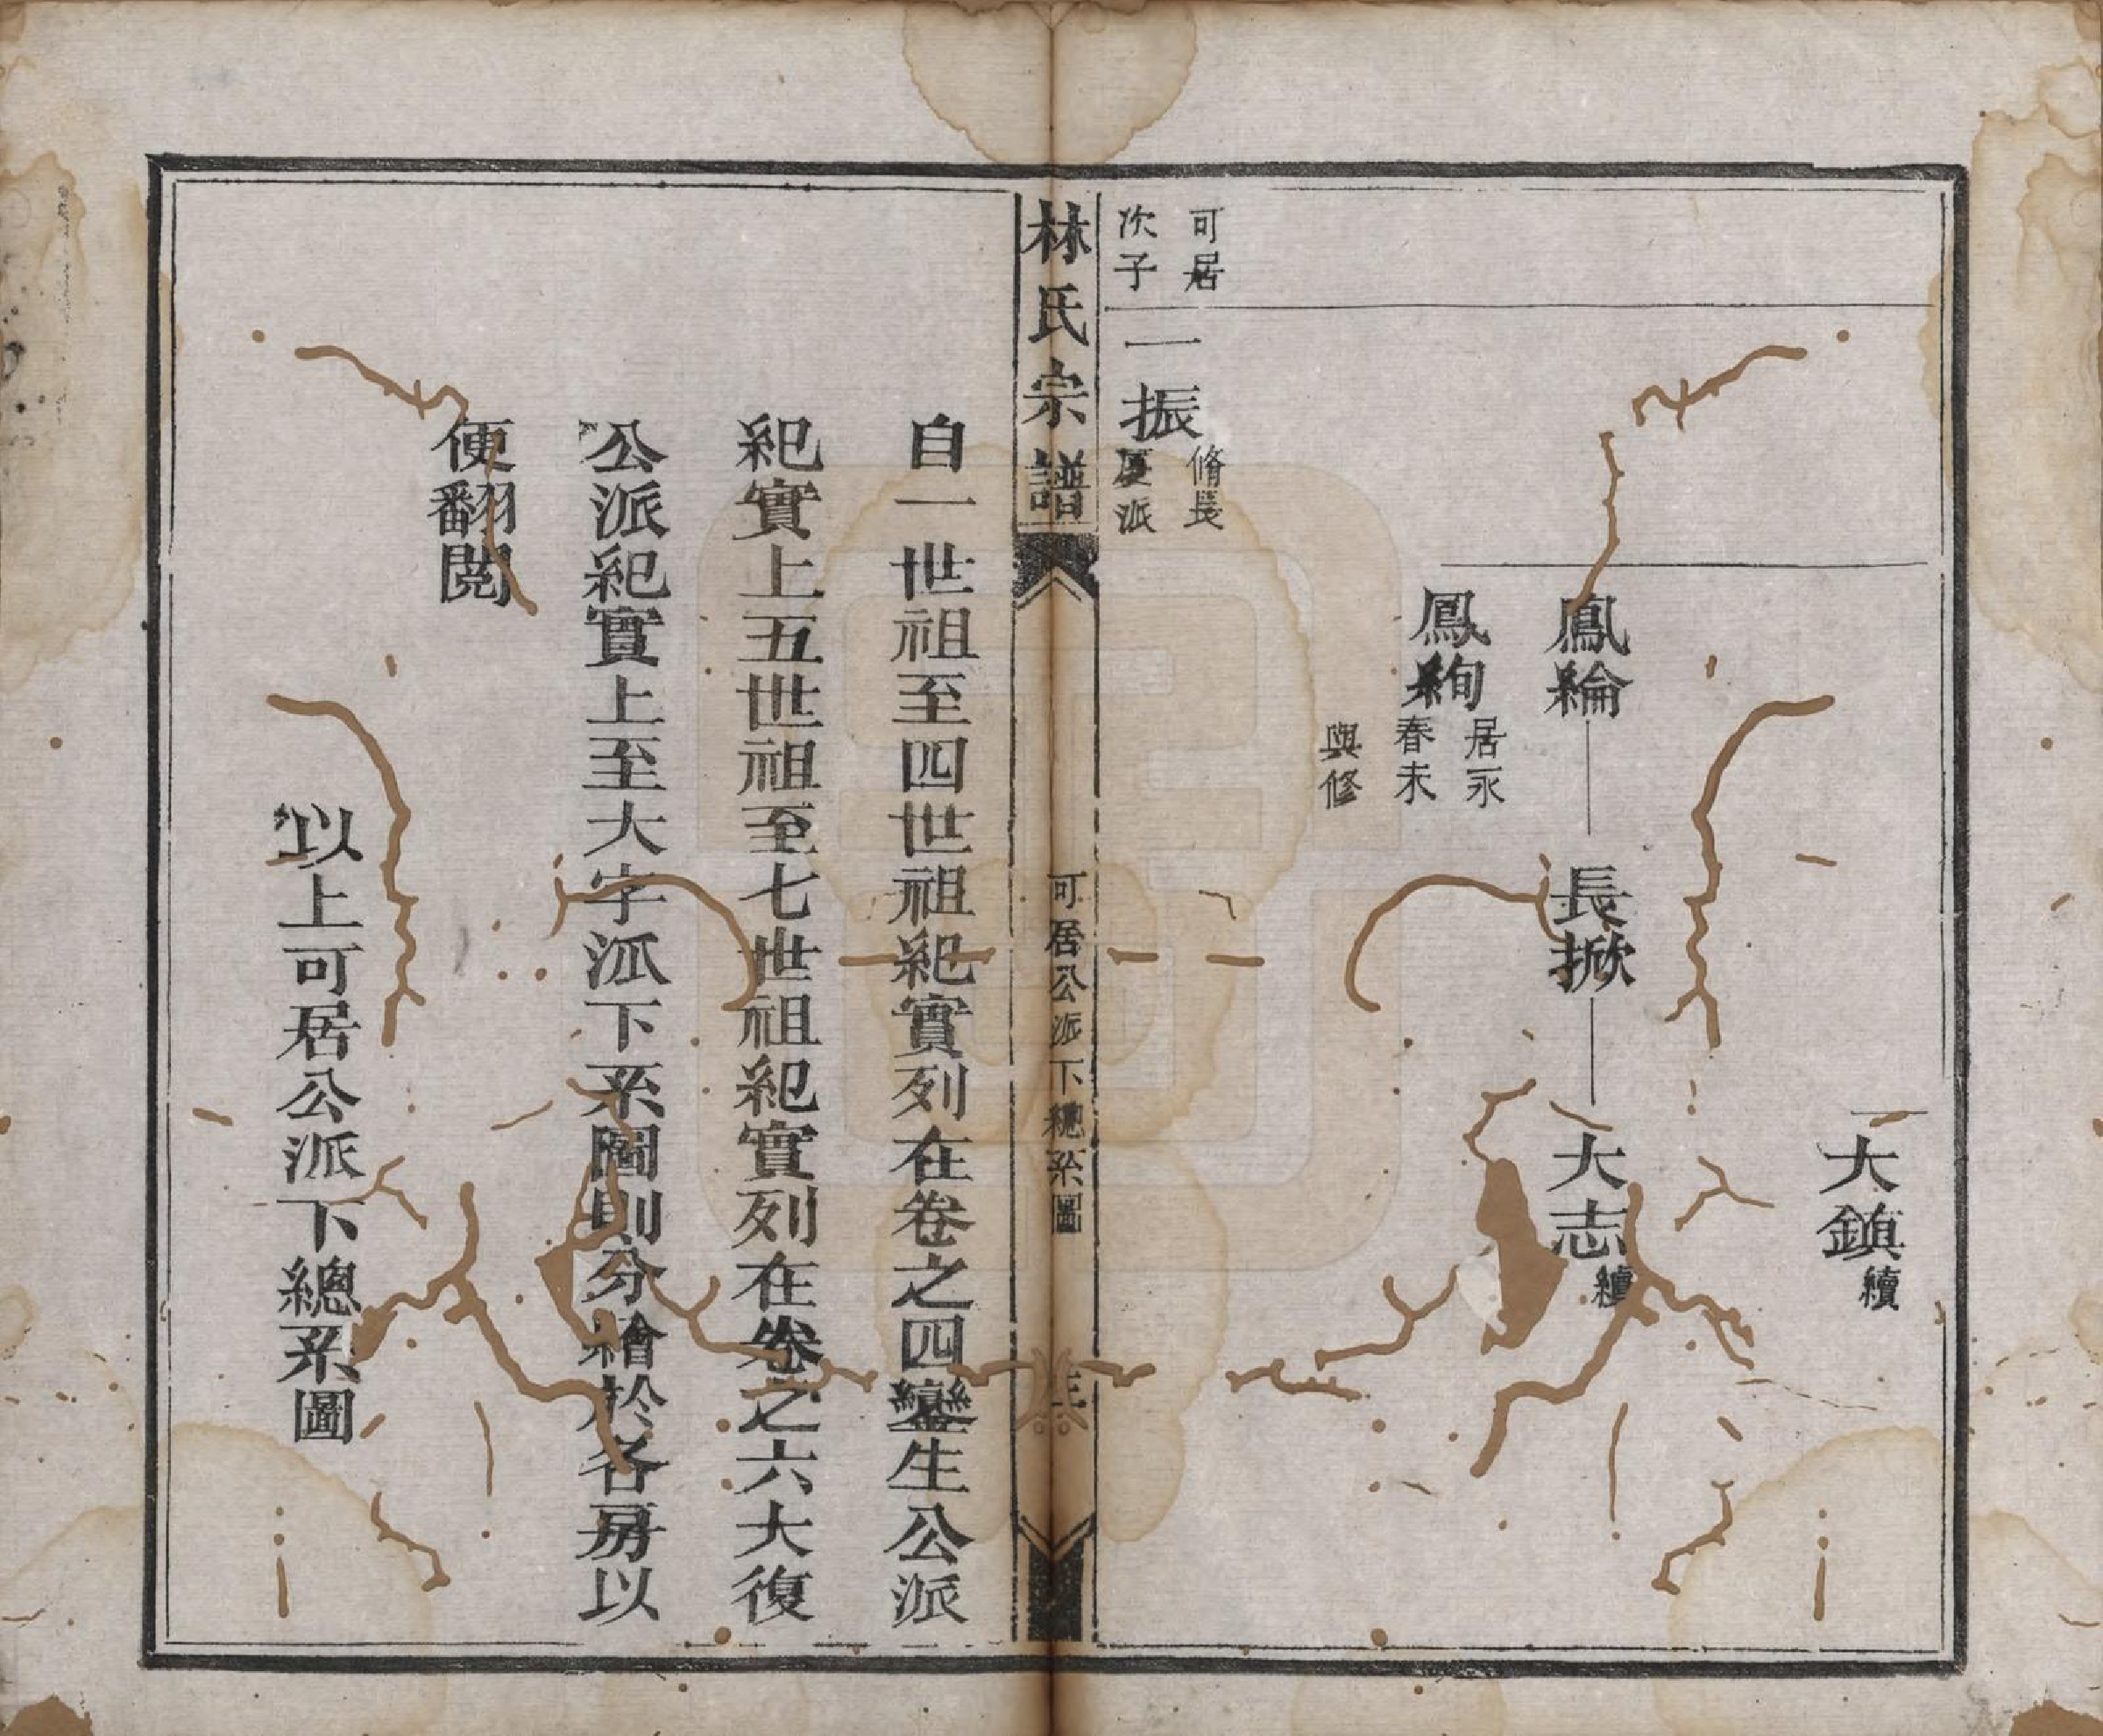 大鎮續
鳳綸 長掀 大志續
鳳絢居永春未與修
可居次子
一振脩長厦派
林氏宗譜
可居公派下總系圖
自一世祖至四世祖紀實列在卷之四鸞生公派
紀實上五世祖至七世祖紀實列在卷之六大復
公派紀實上至大字派下系圖則分繪於各房以
便翻閱
以上可居公派下總系圖